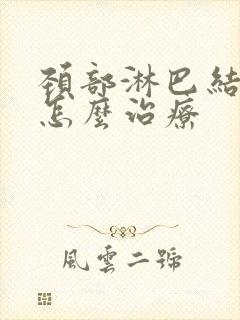 頸部淋巴結
怎麼治療
風雲二號